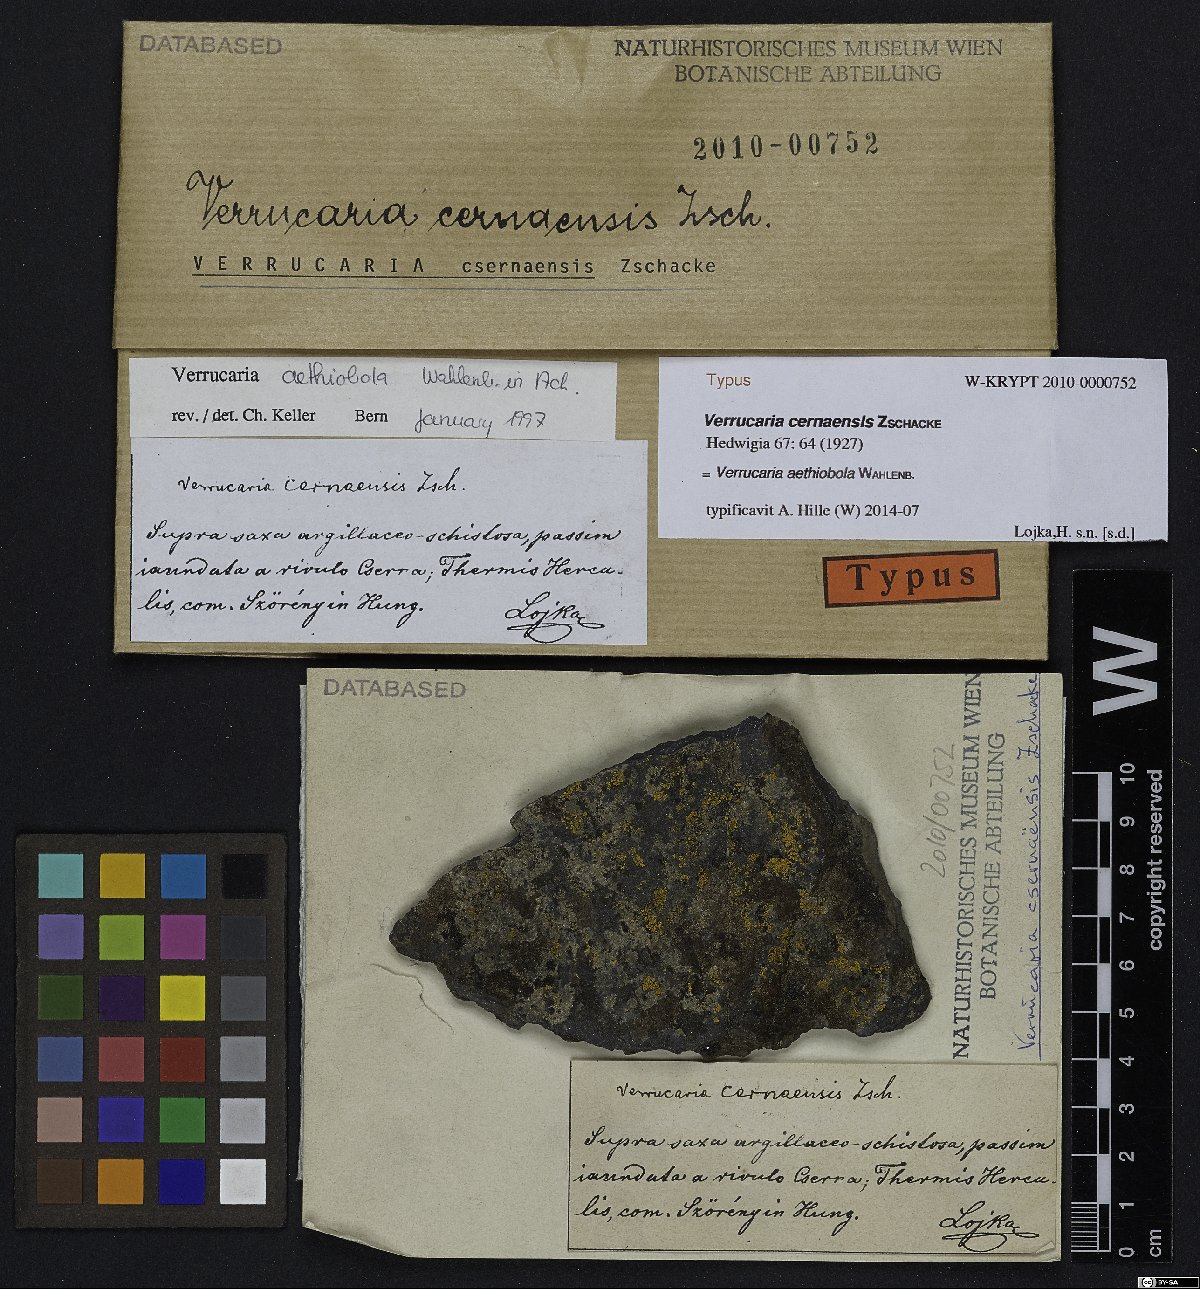 DATABASED
NATURHISTORISCHES MUSEUM WIEN
BOTANISCHE ABTEILUNG
2010-00752
Verrucaria cernaensis Zsch.
VERRUCARIA csernaensis Zschacke
Verrucaria aethiobola Wahlenb. in Ach.
rev. / det. Ch. Keller Bern January 1997
Verrucaria cernaensis Zsch.
Supra saxa argillaceo-schistosa, passim
inundata a rivulo Cserna; Thermis Hercu-
lis, com. Szörény in Hung.
Lojka
Typus
W-KRYPT 2010 0000752
Verrucaria cernaensis ZSCHACKE
Hedwigia 67: 64 (1927)
= Verrucaria aethiobola WAHLENB.
typificavit A. Hille (W) 2014-07
Lojka,H. s.n. [s.d.]
Typus
DATABASED
2010/00752
NATURHISTORISCHES MUSEUM WIEN
BOTANISCHE ABTEILUNG
Verrucaria csernaënsis Zschacke
Verrucaria cernaensis Zsch.
Supra saxa argillaceo-schistosa, passim
inundata a rivulo Cserna; Thermis Hercu-
lis, com. Szörény in Hung.
Lojka
W
10
9
8
7
6
5
4
3
2
1
0
cm
copyright reserved
cc BY-SA